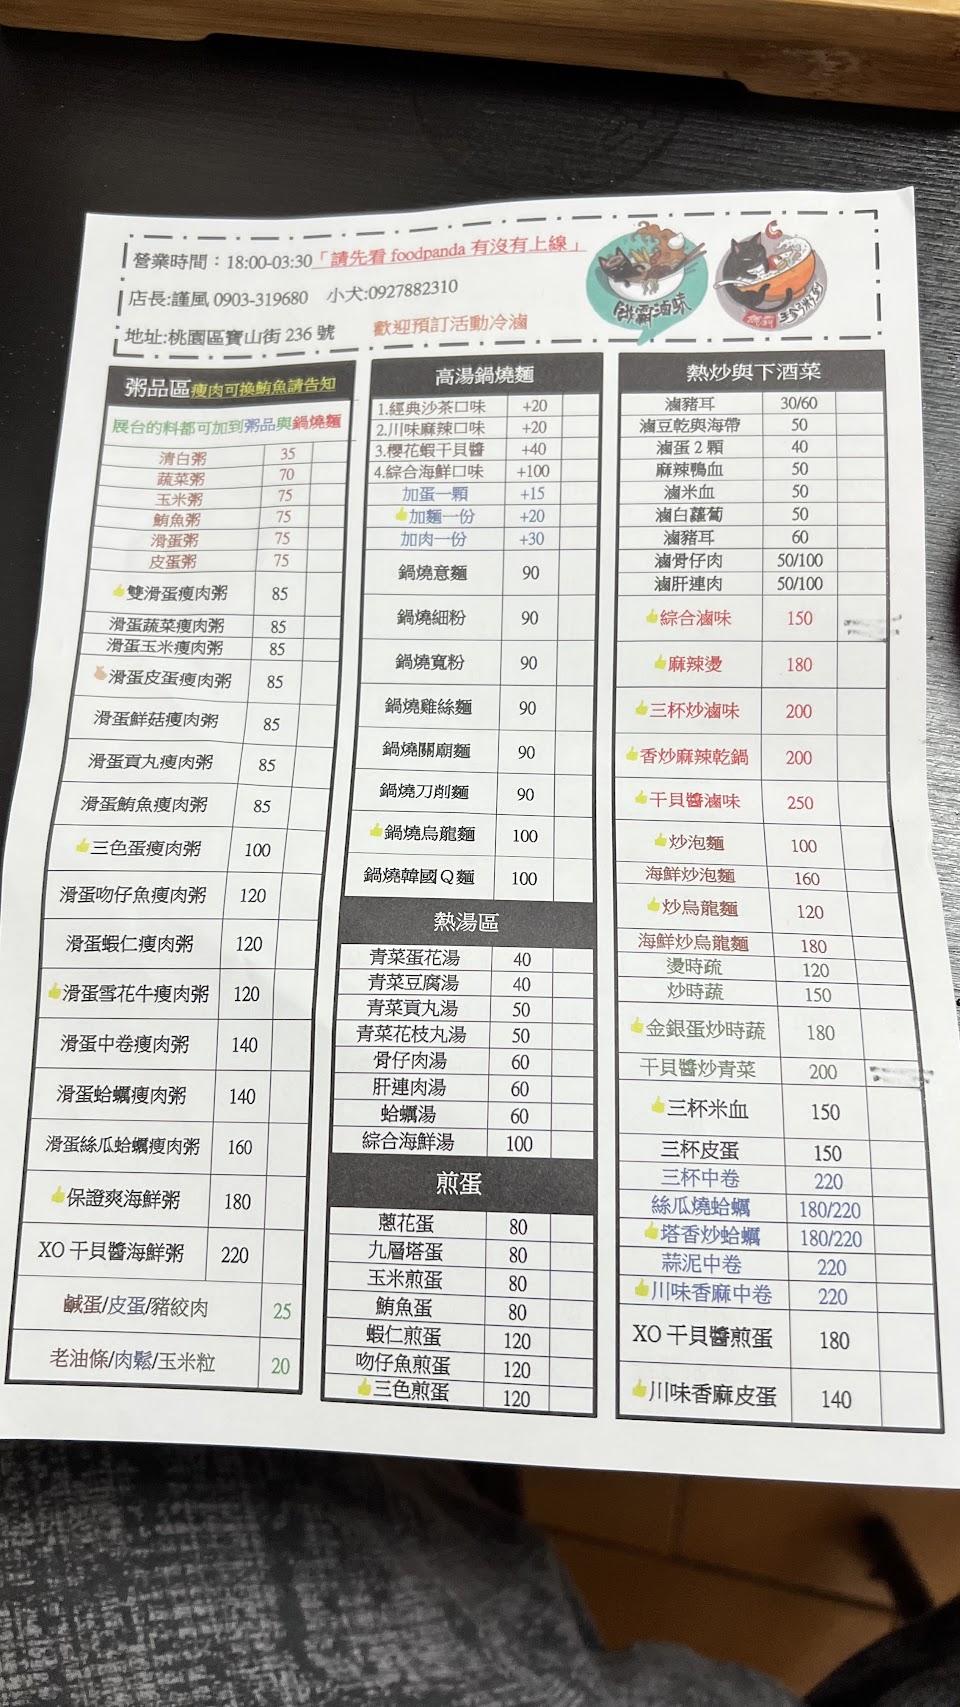 營業時間：18:00-03:30「請先看 foodpanda 有沒有上線」
店長:謹風 0903-319680 小犬:0927882310
地址:桃園區寶山街 236 號 歡迎預訂活動冷滷
滷味
粥品區瘦肉可換鮪魚請告知
展台的料都可加到粥品與鍋燒麵
清白粥 35
蔬菜粥 70
玉米粥 75
鮪魚粥 75
滑蛋粥 75
皮蛋粥 75
雙滑蛋瘦肉粥 85
滑蛋蔬菜瘦肉粥 85
滑蛋玉米瘦肉粥 85
滑蛋皮蛋瘦肉粥 85
滑蛋鮮菇瘦肉粥 85
滑蛋貢丸瘦肉粥 85
滑蛋鮪魚瘦肉粥 85
三色蛋瘦肉粥 100
滑蛋吻仔魚瘦肉粥 120
滑蛋蝦仁瘦肉粥 120
滑蛋雪花牛瘦肉粥 120
滑蛋中卷瘦肉粥 140
滑蛋蛤蠣瘦肉粥 140
滑蛋絲瓜蛤蠣瘦肉粥 160
保證爽海鮮粥 180
XO 干貝醬海鮮粥 220
鹹蛋/皮蛋/豬絞肉 25
老油條/肉鬆/玉米粒 20
高湯鍋燒麵
1.經典沙茶口味 +20
2.川味麻辣口味 +20
3.櫻花蝦干貝醬 +40
4.綜合海鮮口味 +100
加蛋一顆 +15
加麵一份 +20
加肉一份 +30
鍋燒意麵 90
鍋燒細粉 90
鍋燒寬粉 90
鍋燒雞絲麵 90
鍋燒關廟麵 90
鍋燒刀削麵 90
鍋燒烏龍麵 100
鍋燒韓國Ｑ麵 100
熱湯區
青菜蛋花湯 40
青菜豆腐湯 40
青菜貢丸湯 50
青菜花枝丸湯 50
骨仔肉湯 60
肝連肉湯 60
蛤蠣湯 60
綜合海鮮湯 100
煎蛋
蔥花蛋 80
九層塔蛋 80
玉米煎蛋 80
鮪魚蛋 80
蝦仁煎蛋 120
吻仔魚煎蛋 120
三色煎蛋 120
熱炒與下酒菜
滷豬耳 30/60
滷豆乾與海帶 50
滷蛋 2 顆 40
麻辣鴨血 50
滷米血 50
滷白蘿蔔 50
滷豬耳 60
滷骨仔肉 50/100
滷肝連肉 50/100
綜合滷味 150
麻辣燙 180
三杯炒滷味 200
香炒麻辣乾鍋 200
干貝醬滷味 250
炒泡麵 100
海鮮炒泡麵 160
炒烏龍麵 120
海鮮炒烏龍麵 180
燙時疏 120
炒時蔬 150
金銀蛋炒時蔬 180
干貝醬炒青菜 200
三杯米血 150
三杯皮蛋 150
三杯中卷 220
絲瓜燒蛤蠣 180/220
塔香炒蛤蠣 180/220
蒜泥中卷 220
川味香麻中卷 220
XO 干貝醬煎蛋 180
川味香麻皮蛋 140